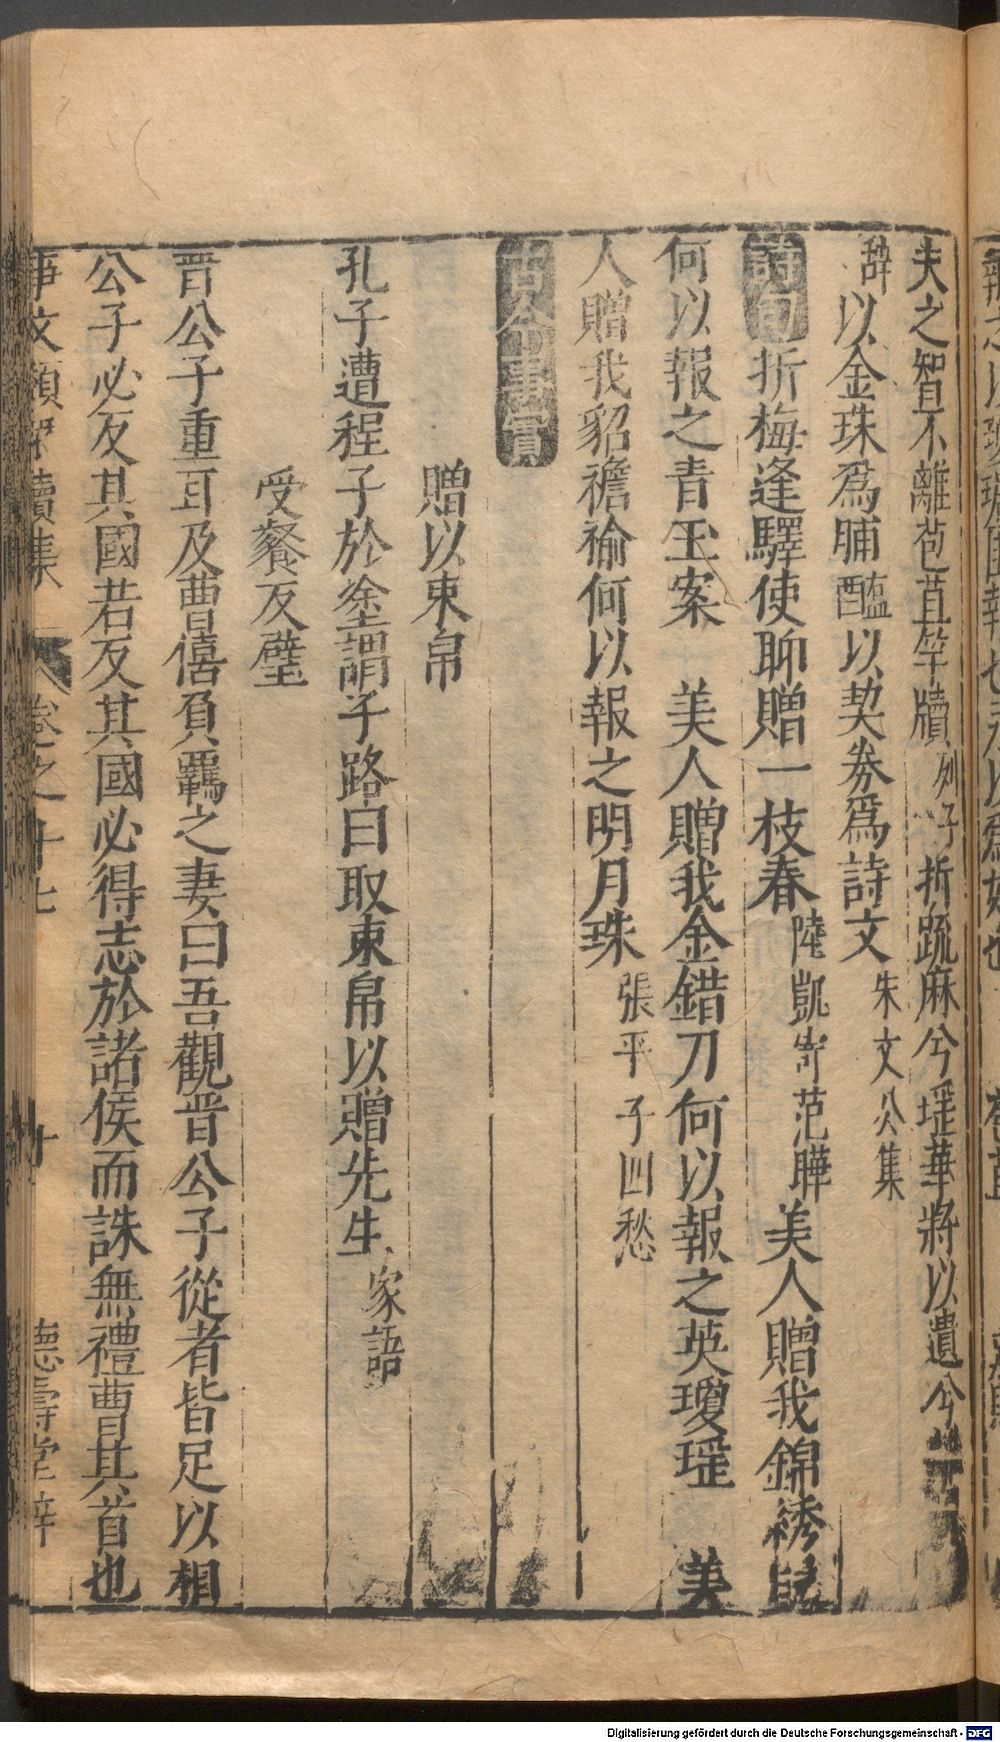 夫之智不離苞苴竿牘列子折疏麻兮瑤華將以遺兮
辭以金珠爲脯醢以契劵爲詩文朱文公集
詩句折梅逢驛使聊贈一枝春陸凱寄范曄美人贈我錦綉段
何以報之青玉案 美人贈我金錯刀何以報之英瓊瑤 美
人贈我貂襜褕何以報之明月珠張平子四愁
古今事實
贈以束帛
孔子遭程子於塗謂子路曰取束帛以贈先生家語
受餐反璧
晋公子重耳及曹僖負覊之妻曰吾觀晋公子從者皆足以相
公子必反其國若反其國必得志於諸侯而誅無禮曹其首也
事文類聚續集 卷之十七 十 德壽堂梓
Digitalisierung gefördert durch die Deutsche Forschungsgemeinschaft - DFG